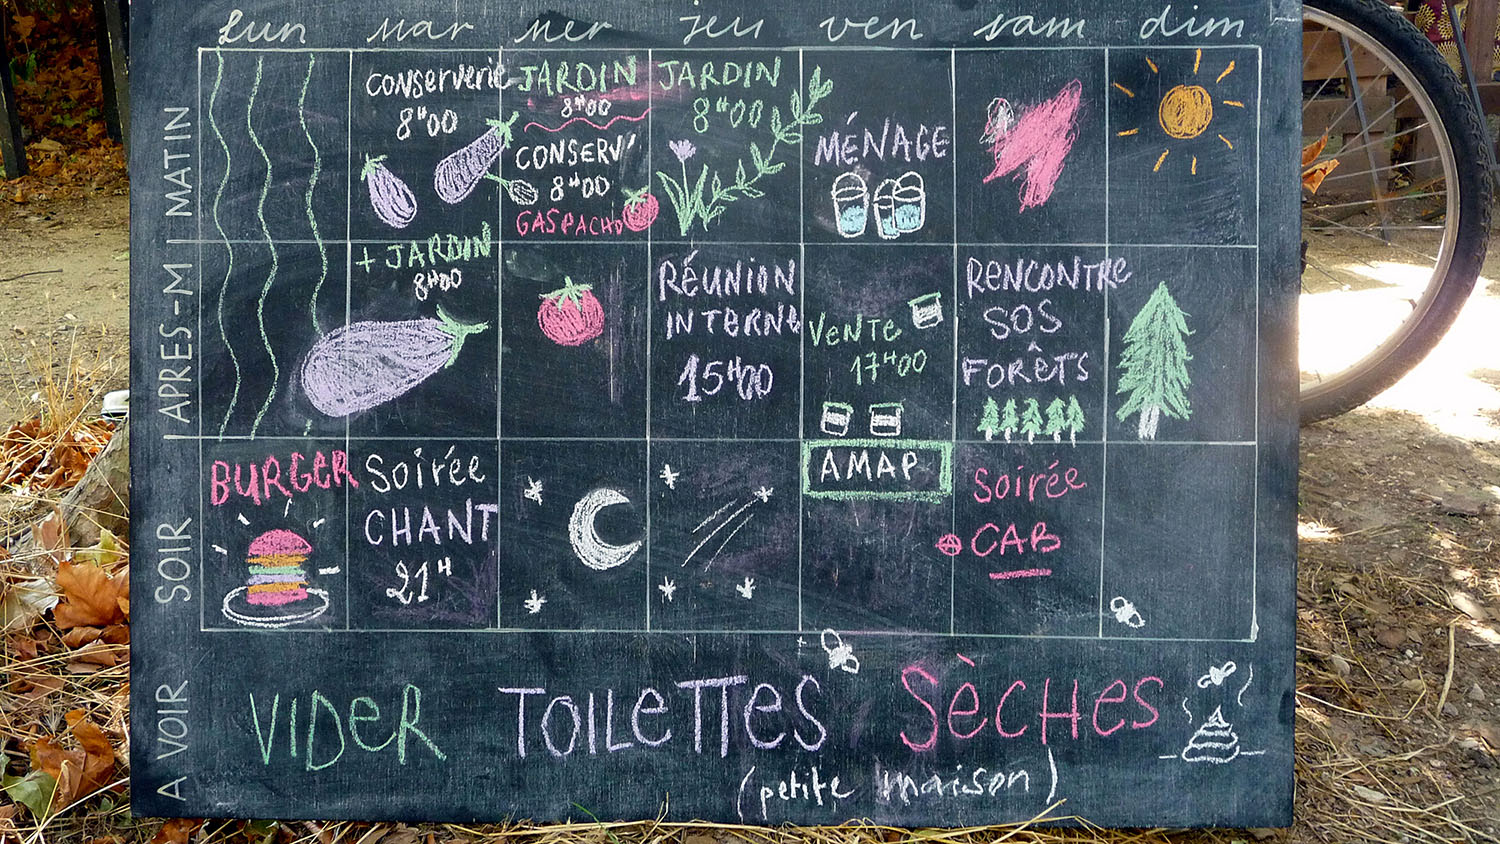 lun mar mer jeu ven sam dim
MATIN
conserverie
8H00
JARDIN
8H00
CONSERV'
8H00
GASPACHO
JARDIN
8H00
MÉNAGE
APRES-M
+ JARDIN
8H00
RÉUNION
INTERNE
15H00
VENTE
17H00
RENCONTRE
SOS
FORÊTS
SOIR
BURGER
Soirée
CHANT
21H
AMAP
Soirée
CAB
A VOIR
VIDER TOILETTES SÈCHES
(petite maison)